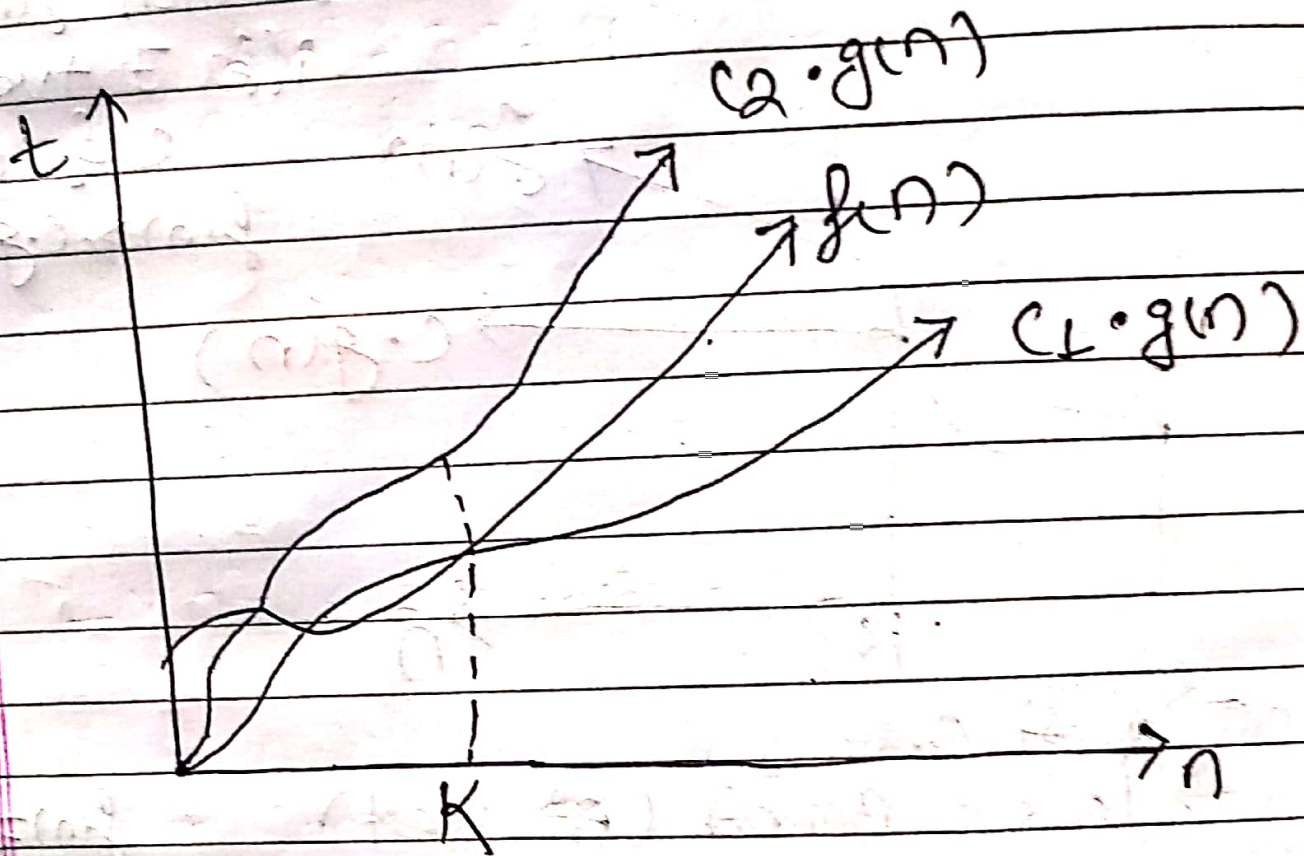 C2·g(n)
t
f(n)
C1·g(n)
K
n